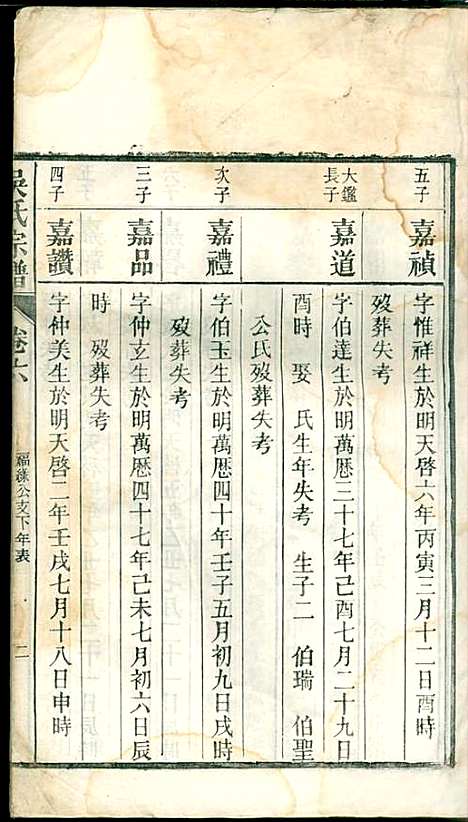 五子 嘉禎 字惟祥生於明天啓六年丙寅三月十二日酉時
歿葬失考
大鑑長子 嘉道 字伯達生於明萬曆三十七年己酉七月二十九日
酉時 娶 氏生年失考 生子二 伯瑞 伯聖
公氏歿葬失考
次子 嘉禮 字伯玉生於明萬曆四十年壬子五月初九日戌時
歿葬失考
三子 嘉品 字仲玄生於明萬曆四十七年己未七月初六日辰
時 歿葬失考
四子 嘉讚 字仲美生於明天啓二年壬戌七月十八日申時
吳氏宗譜 卷六 福緣公支下年表 二